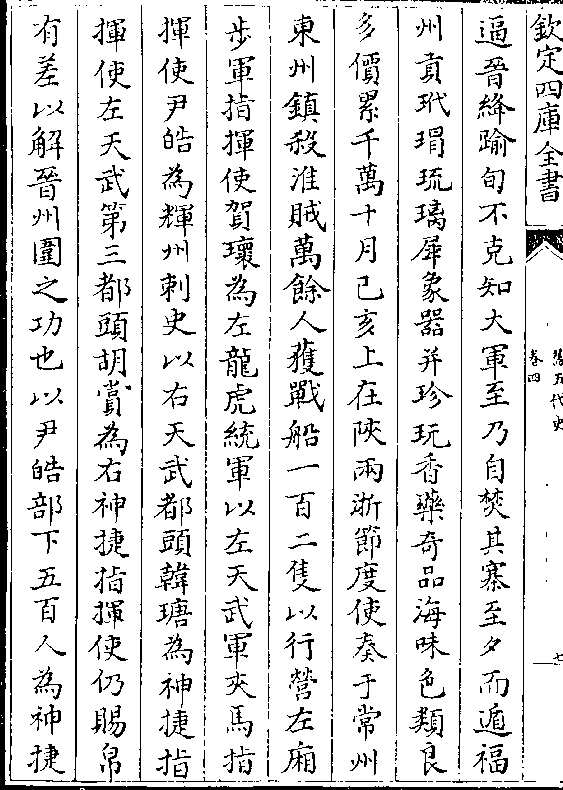 欽定四庫全書
舊五代史
卷四
七
逼晉絳踰旬不克知大軍至乃自焚其寨至夕而遁福
州貢玳瑁琉璃犀象器并珍玩香藥奇品海味色類良
多價累千萬十月己亥上在陝兩浙節度使奏于常州
東州鎮殺淮賊萬餘人獲戰船一百二隻以行營左廂
步軍指揮使賀瓌為左龍虎統軍以左天武軍夾馬指
揮使尹皓為輝州刺史以右天武都頭韓瑭為神捷指
揮使左天武第三都頭胡賞為右神捷指揮使仍賜帛
有差以解晉州圍之功也以尹皓部下五百人為神捷